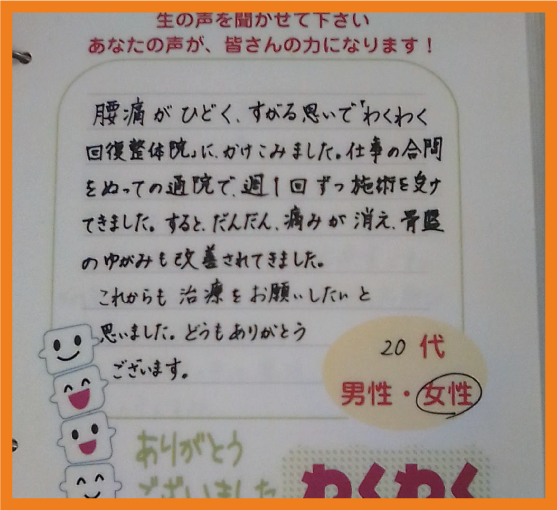 生の声を聞かせて下さい
あなたの声が、皆さんの力になります!
腰痛がひどく、すがる思いで「わくわく
回復整体院」に、かけこみました。仕事の合間
をぬっての通院で、週1回ずつ施術を受け
てきました。すると、だんだん、痛みが消え、骨盤
のゆがみも改善されてきました。
これからも治療をお願いしたいと
思いました。どうもありがとう
ございます。
20代
男性・女性
ありがとう
ございました
わくわく